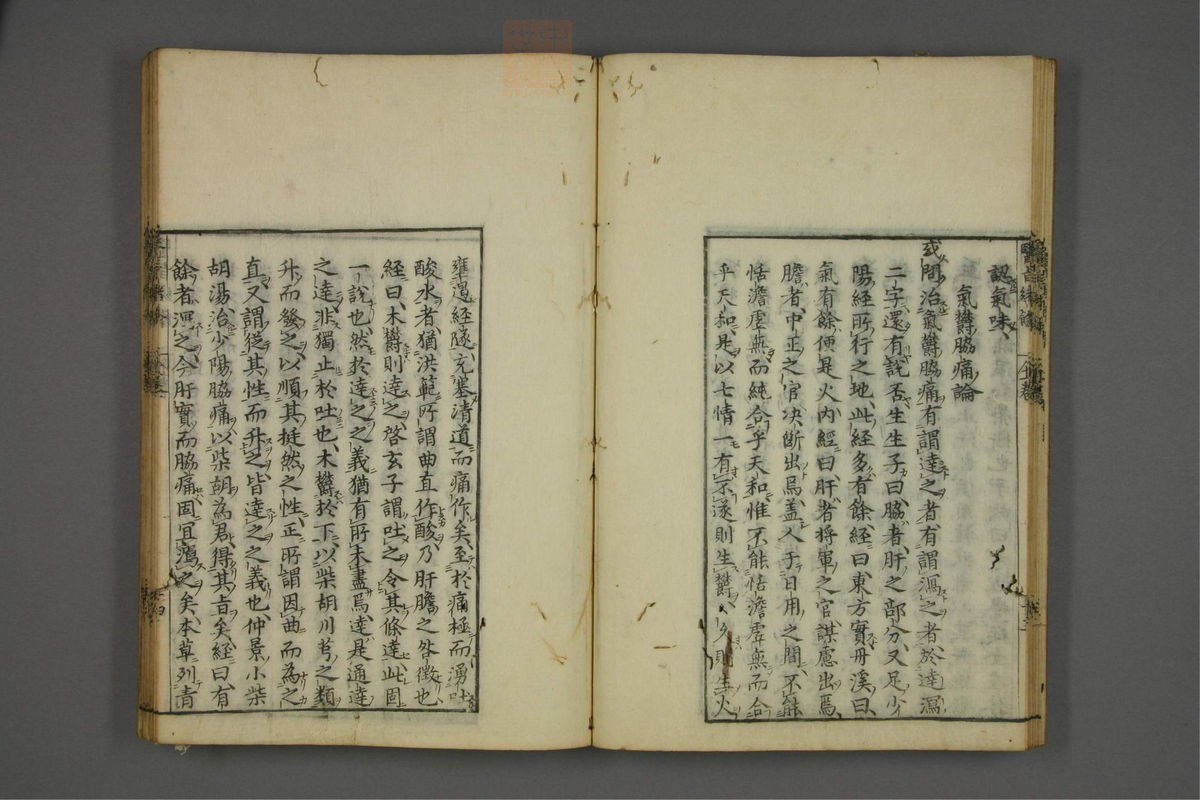 認氣味
氣欝脇痛論
或問治氣欝脇痛有謂達之者有謂瀉之者於達瀉
二字還有説否生生子曰脇者肝之部分又足少
陽經所行之地此經多有餘經曰東方實丹溪曰
氣有餘便是火内經曰肝者將軍之官謀慮出焉
膽者中正之官决斷出焉盖人于日用之間不能
恬澹虚無而純合乎天和惟不能恬澹虚無而合
乎天和是以七情一有不遂則生欝欝久則生火
壅遏經隧充塞清道而痛作矣至於痛極而湧吐
酸水者猶洪範所謂曲直作酸乃肝膽之咎徴也
經曰木欝則達之啓玄子謂吐之令其條達此固
一説也然於達之之義猶有所未盡焉達是通達
之達非獨止於吐也木欝於下以柴胡川芎之類
升而發之以順其挺然之性正所謂因曲而為之
直又謂從其性而升之皆達之之義也仲景小柴
胡湯治少陽脇痛以柴胡為君得其旨矣經曰有
餘者瀉之今肝實而脇痛固宜瀉之矣本草列青